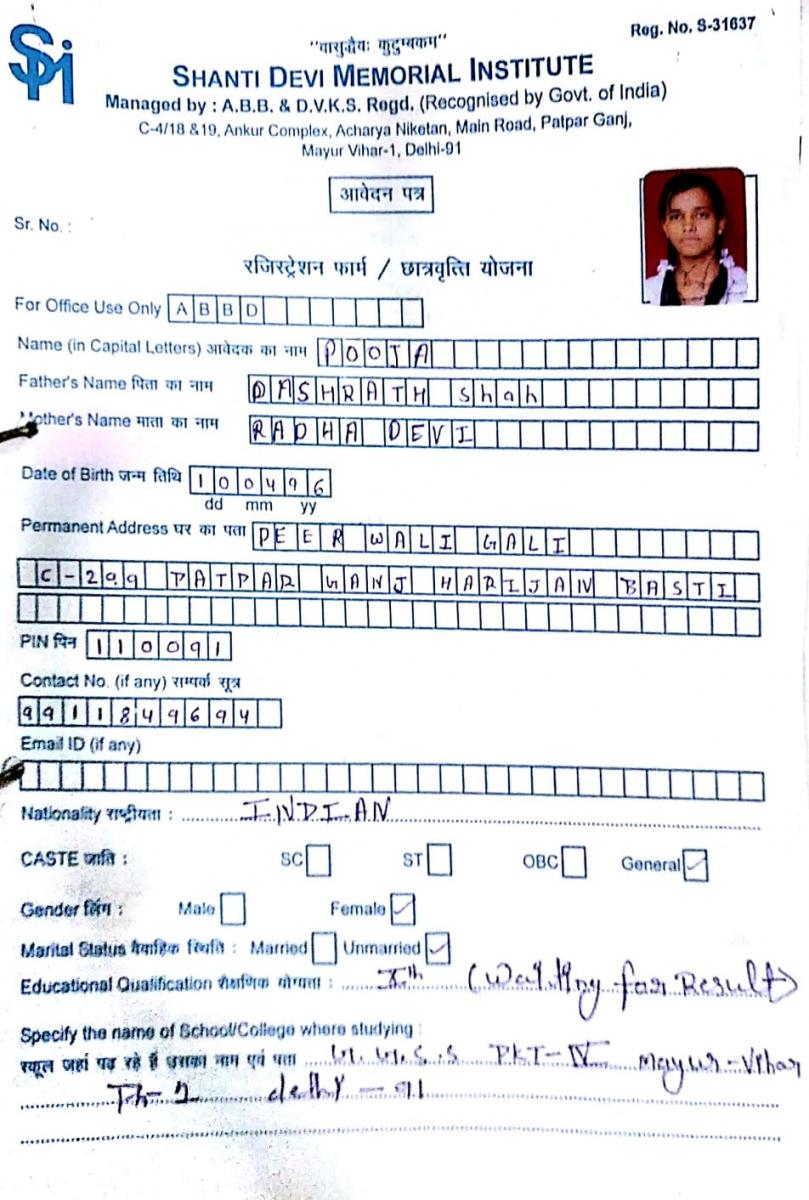 Reg. No. S-31637
SPMI
"वासुद्धैवः कुटुम्बकम"
SHANTI DEVI MEMORIAL INSTITUTE
Managed by : A.B.B. & D.V.K.S. Regd. (Recognised by Govt. of India)
C-4/18 &19, Ankur Complex, Acharya Niketan, Main Road, Patpar Ganj,
Mayur Vihar-1, Delhi-91
आवेदन पत्र
Sr. No. :
रजिस्ट्रेशन फार्म / छात्रवृत्ति योजना
For Office Use Only ABBD
Name (in Capital Letters) आवेदक का नाम POOJA
Father's Name पिता का नाम DASHRATH Shah
Mother's Name माता का नाम RADHA DEVI
Date of Birth जन्म तिथि 100496
dd mm yy
Permanent Address घर का पता PEER WALI GALI
C-299 PATPAR GANJ HARIJAN BASTI
PIN पिन 110091
Contact No. (if any) सम्पर्क सूत्र
9911849694
Email ID (if any)
Nationality राष्ट्रीयता : INDIAN
CASTE जाति : SC ST OBC General ✓
Gender लिंग : Male Female ✓
Marital Status वैवाहिक स्थिति : Married Unmarried ✓
Educational Qualification शैक्षणिक योग्यता : Xth (Waiting for Result)
Specify the name of School/College where studying :
स्कूल जहां पढ़ रहे हैं उसका नाम एवं पता G.G.S.S PKT-IV Mayur-Vihar
Ph-1 delhi - 91